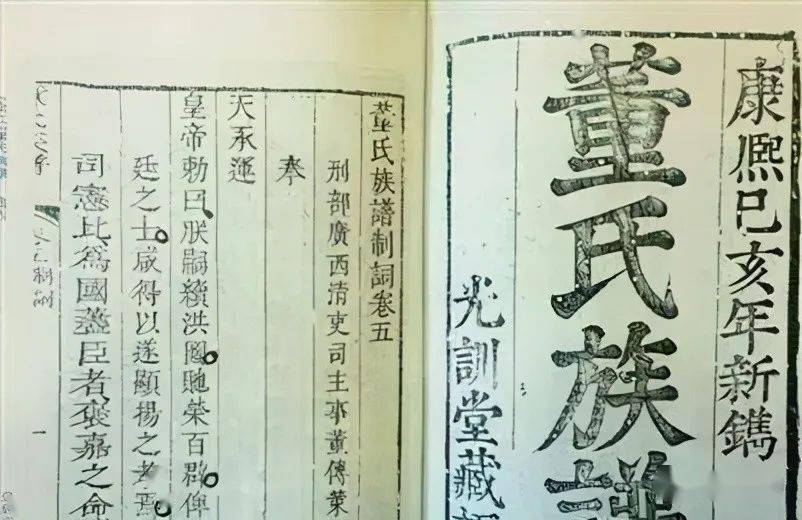 康熙己亥年新鐫
董氏族譜
光訓堂藏
董氏族譜制詞卷五
刑部廣西清吏司主事董傳策
奉
天承運
皇帝勅曰朕嗣續洪圖貤榮百群俾
廷之士咸得以遂顯揚之孝焉
司憲比爲國藎臣者褒嘉之命
一